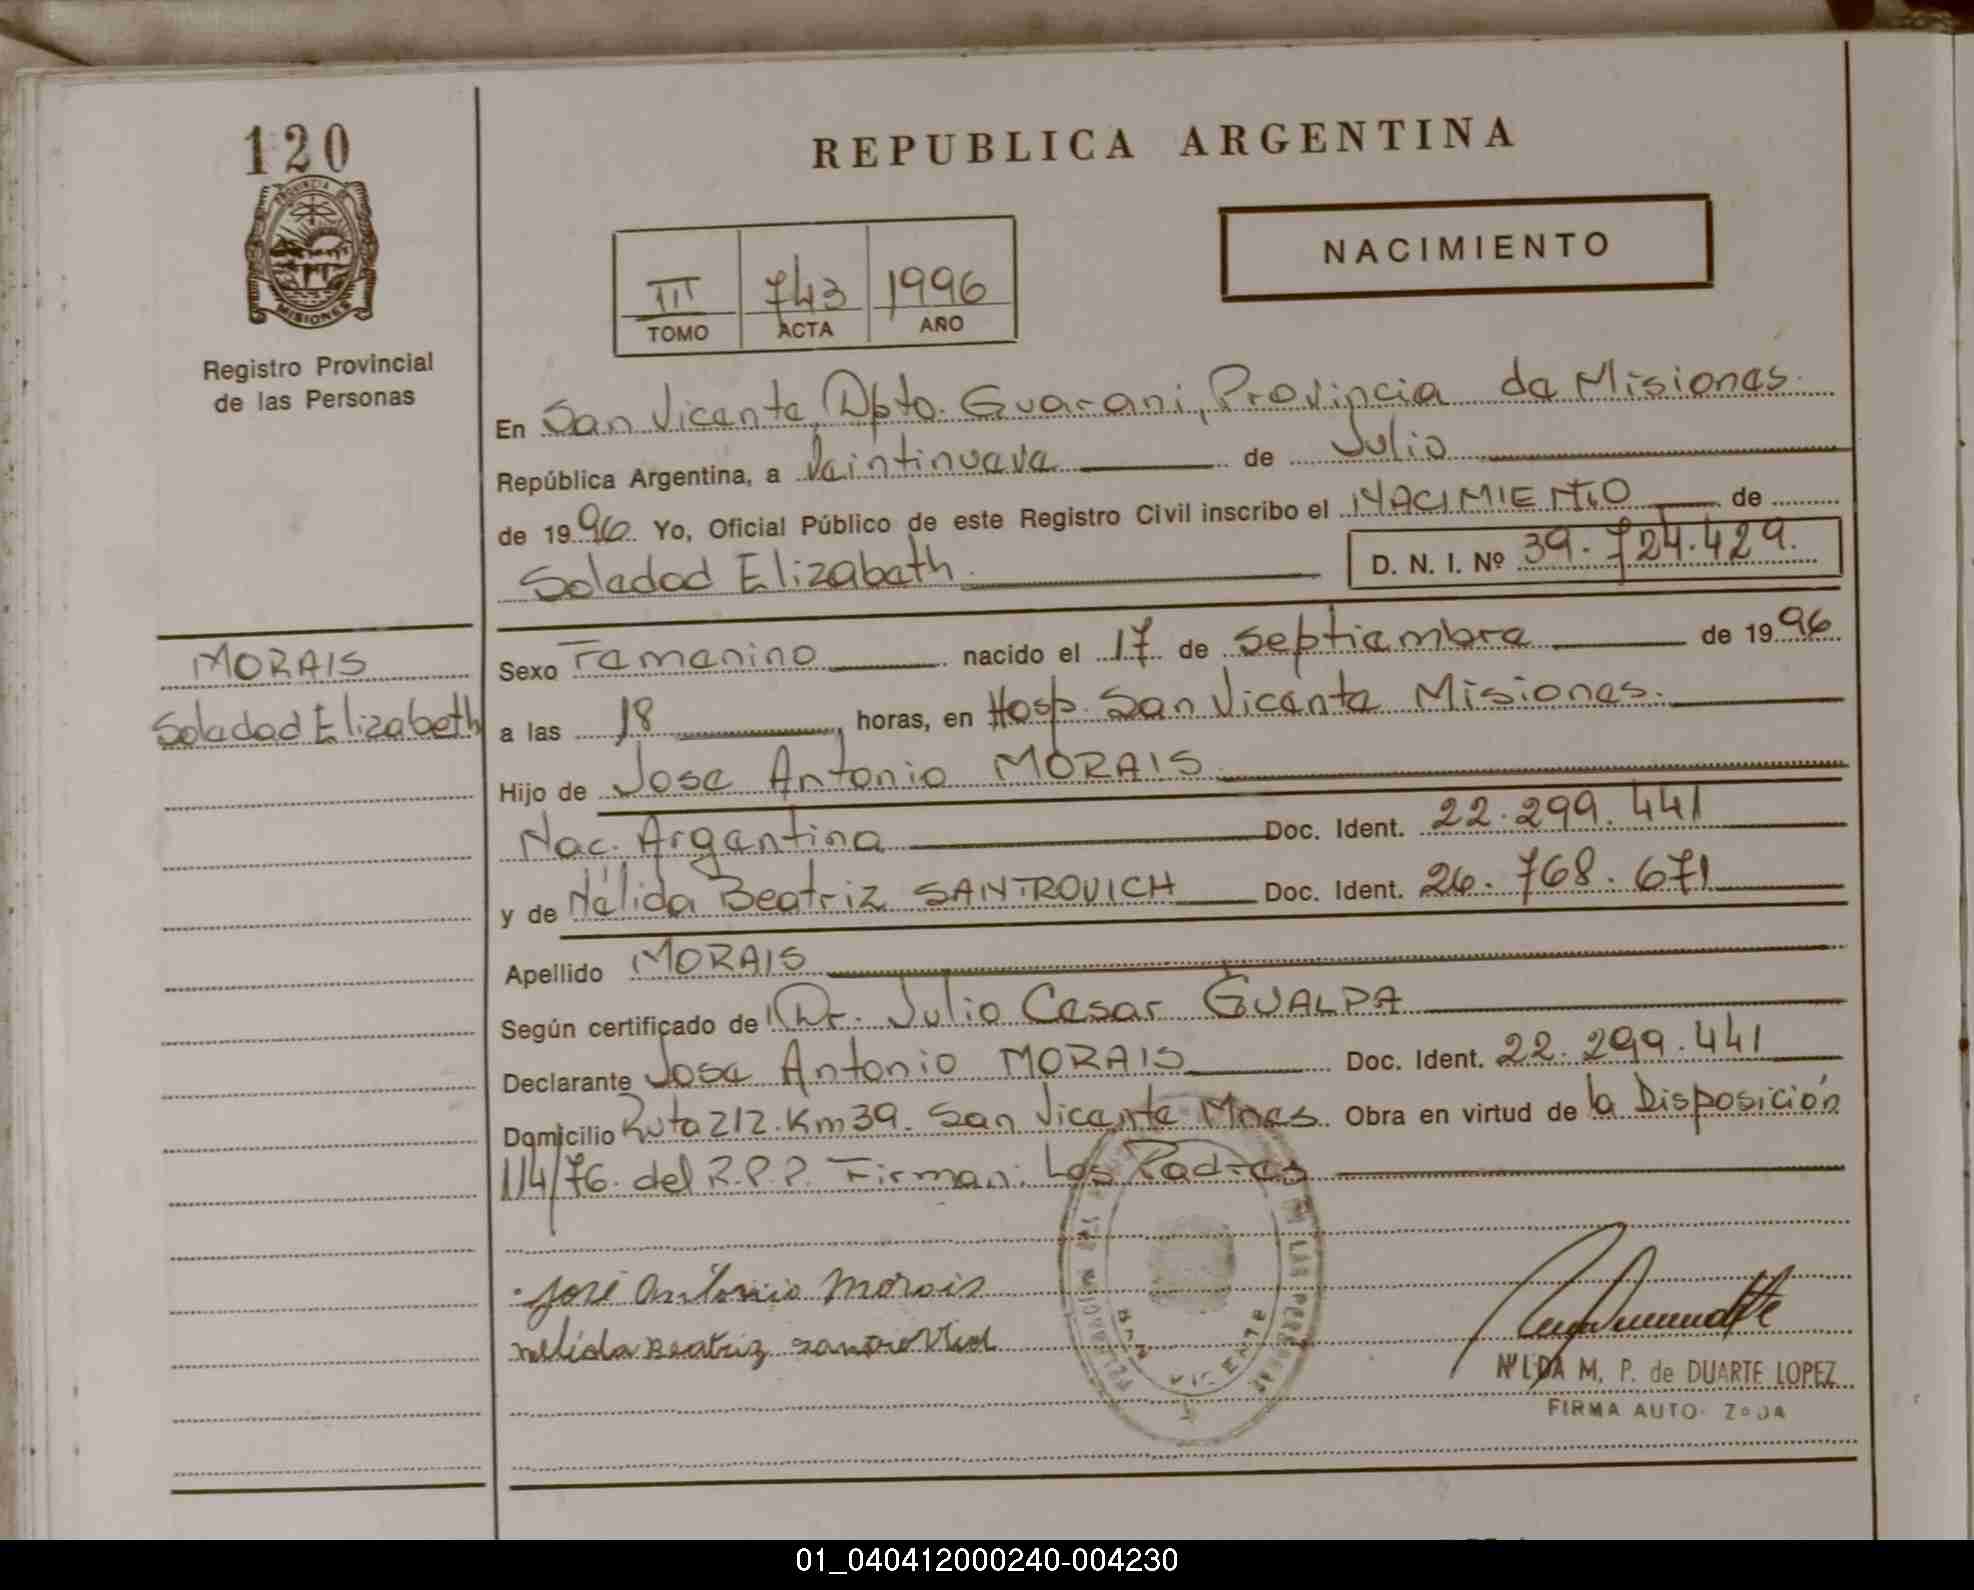 120
PROVINCIA DE
MISIONES
Registro Provincial
de las Personas
REPUBLICA ARGENTINA
NACIMIENTO
III 743 1996
TOMO ACTA AÑO
En San Vicente, Dpto. Guarani, Provincia de Misiones.
República Argentina, a Veintinueve de Julio
de 1996 Yo, Oficial Público de este Registro Civil inscribo el NACIMIENTO de
Soledad Elizabeth D. N. I. Nº 39.724.429.
MORAIS
Soledad Elizabeth
Sexo Femenino nacido el 17 de Septiembre de 1996
a las 18 horas, en Hosp. San Vicente Misiones.
Hijo de Jose Antonio MORAIS
Nac. Argentina Doc. Ident. 22.299.441
y de Nélida Beatriz SANTROVICH Doc. Ident. 26.768.671
Apellido MORAIS
Según certificado de Dr. Julio Cesar GUALPA
Declarante Jose Antonio MORAIS Doc. Ident. 22.299.441
Domicilio Ruta 212. Km 39. San Vicente Mnes. Obra en virtud de la Disposición
114/76. del R.P.P. Firman: Los Padres
José Antonio Morais
Nelida Beatriz
NILDA M. P. de DUARTE LOPEZ
FIRMA AUTORIZADA
01_040412000240-004230